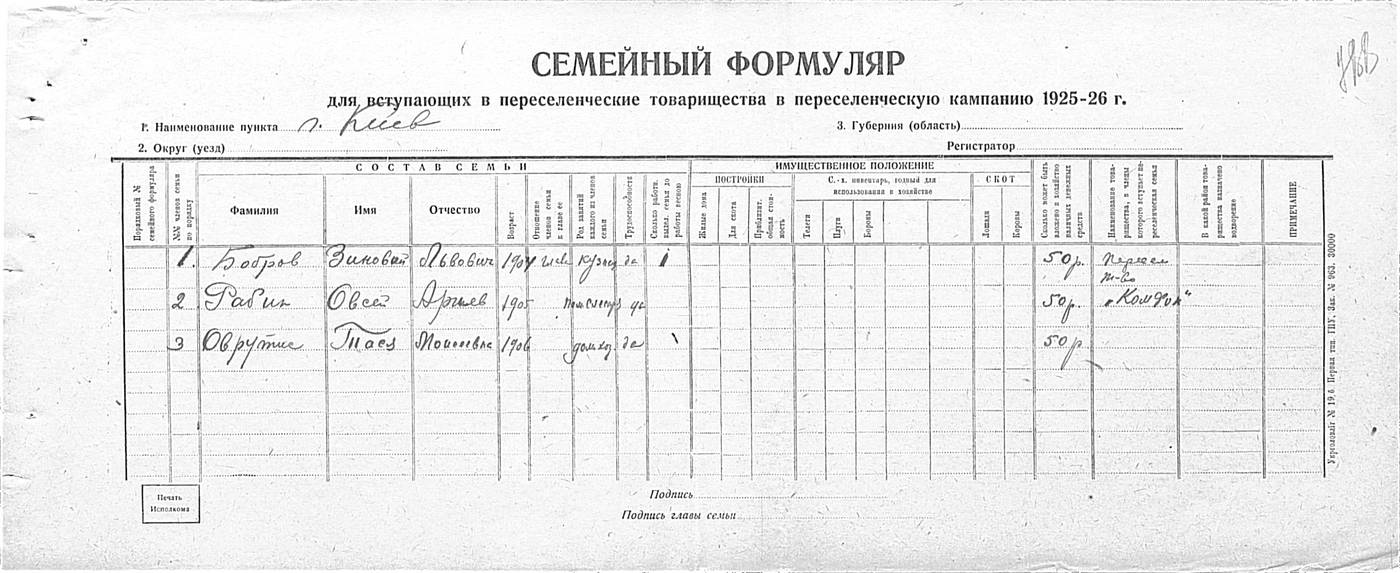 СЕМЕЙНЫЙ ФОРМУЛЯР
для вступающих в переселенческие товарищества в переселенческую кампанию 1925-26 г.
1. Наименование пункта г. Киев
3. Губерния (область)
2. Округ (уезд)
Регистратор
Порядковый № семейного формуляра
№№ членов семьи по порядку
СОСТАВ СЕМЬИ
Фамилия
Имя
Отчество
Возраст
Отношение членов семьи к главе ее
Род занятий каждого из членов семьи
Трудоспособности
Сколько работн. выдел. семья до работы весною
ИМУЩЕСТВЕННОЕ ПОЛОЖЕНИЕ
ПОСТРОЙКИ
Жилые дома
Для скота
Приблизит. общая стоимость
С.-х. инвентарь, годный для использования в хозяйстве
Телеги
Плуги
Бороны
СКОТ
Лошади
Коровы
Сколько может быть вложено в хозяйство наличных денежных средств
Наименование товарищества, в члены которого вступает переселенческая семья
В какой район товарищества назначено водворение
ПРИМЕЧАНИЕ
1. Бобров Зиновий Львович 1904 кузнец да 1 50 р. Пересел
т-во
2 Рабин Овсей 1905 да 50 р. „Комфон"
3 Моисеевна 1906 домхоз. да 50 р
Печать
Исполкома
Подпись
Подпись главы семьи
Укрголовліт № 19,6. Первая тип. ГПУ, Зак. № 963. 30000